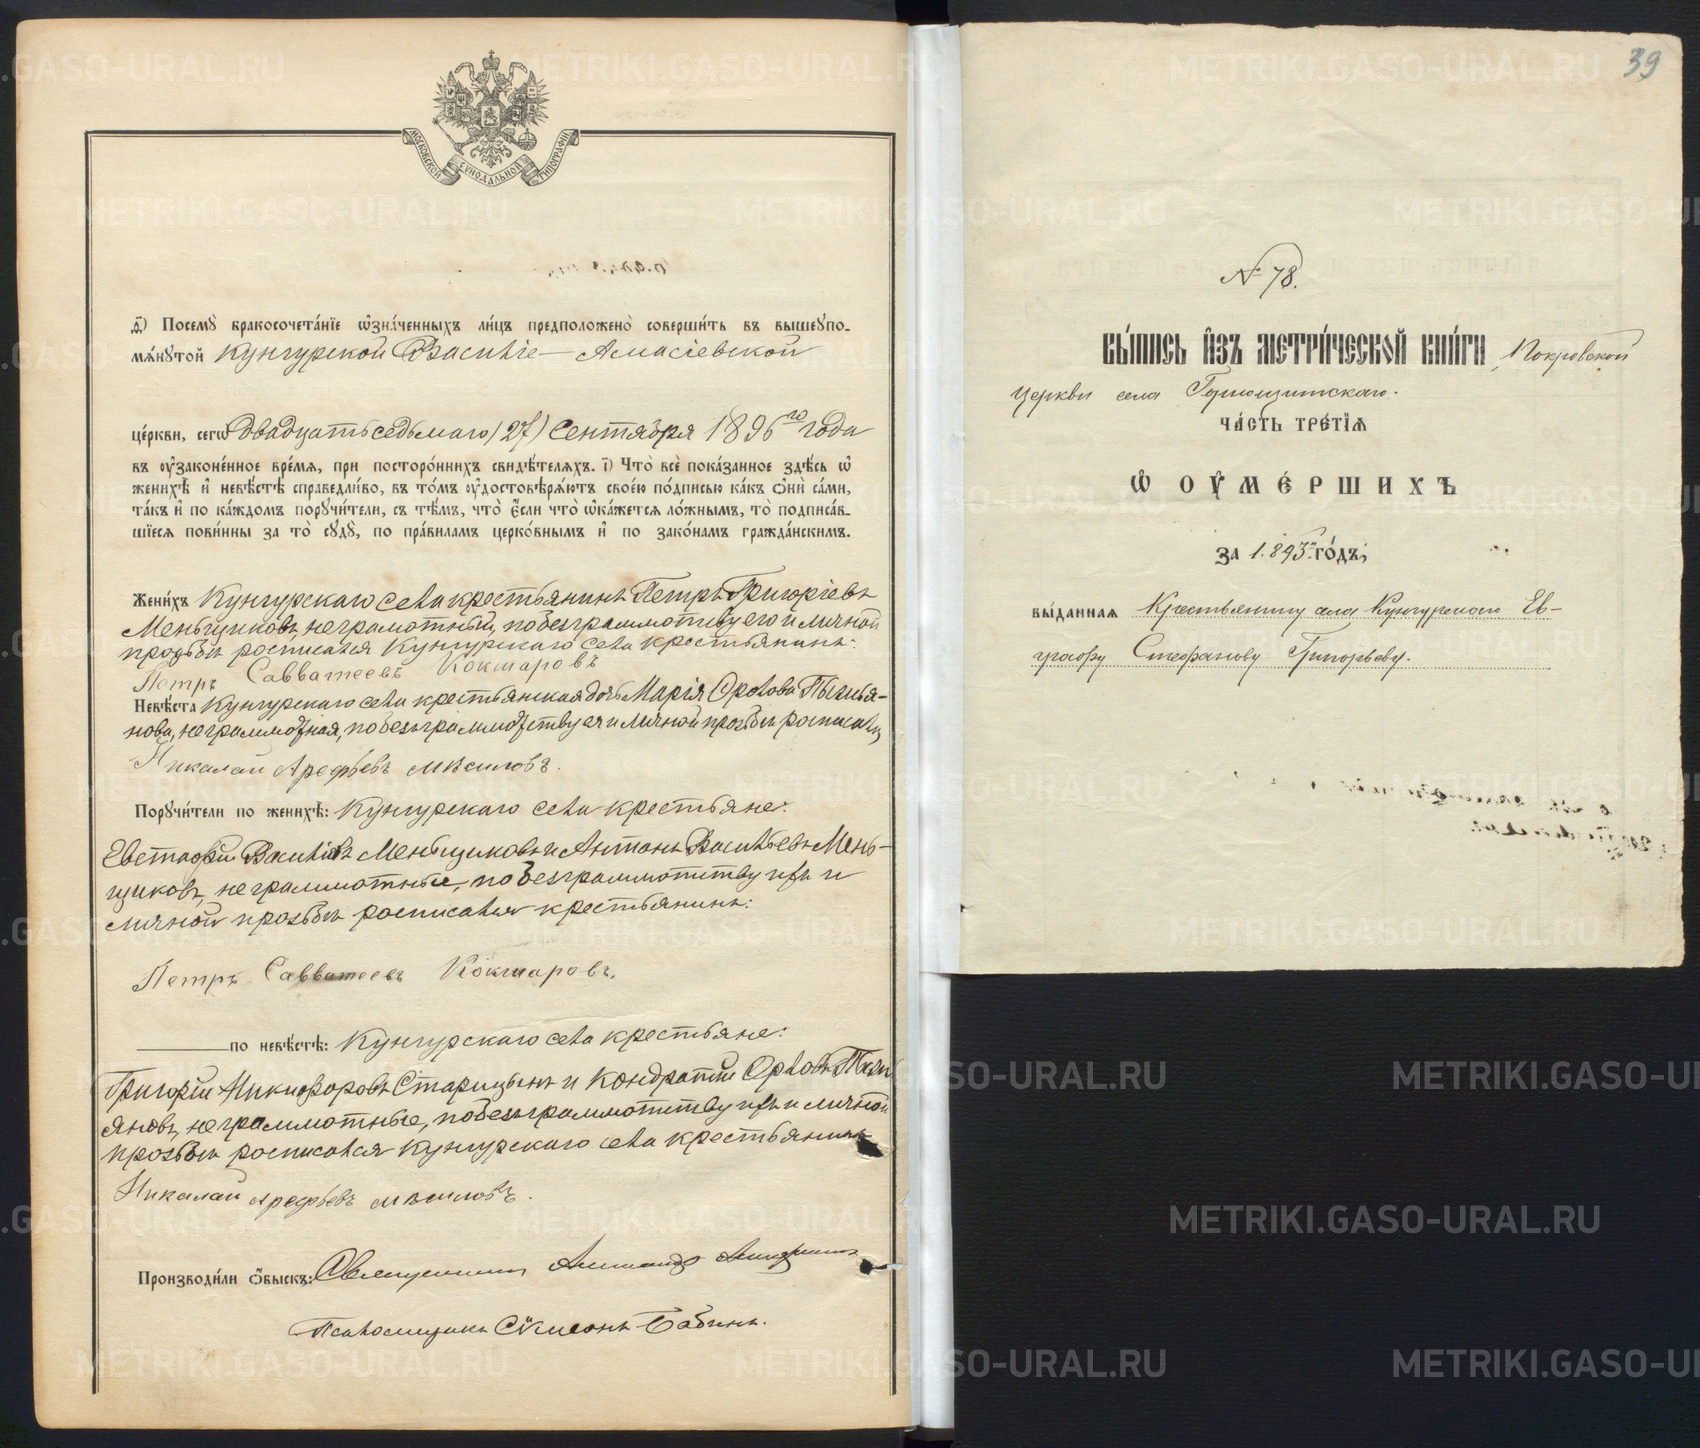 МОСКОВСКОЙ СѴНОДАЛЬНОЙ ТИПОГРАФІИ
д҃) Посемꙋ бракосочета́нїе ѡ҆зна́ченныхъ ли́цъ предположено̀ соверши́ть въ вышеꙋпо-
мѧ́нꙋтой Кунгурской Василіе-Амасіевской
це́ркви, сегѡ̀ двадцать седьмаго (27) Сентября 1896го года
въ ᲂу҆зако́ненное вре́мѧ, при посторо́ннихъ свидѣ́телѧхъ. і҃) Что̀ всѐ пока́занное здѣ́сь ѡ҆
женихѣ̀ и҆ невѣ́стѣ справедли́во, въ то́мъ ᲂу҆достовѣрѧ́ютъ свое́ю по́дписью ка́къ ѻ҆нѝ са́ми,
та́къ и҆ по ка́ждомъ порꙋчи́тели, съ тѣ́мъ, что̀ є҆́сли что̀ ѡ҆ка́жется ло́жнымъ, то̀ подписа́в-
шїеся пови́нны за то̀ сꙋдꙋ̀, по пра́виламъ церко́внымъ и҆ по зако́намъ гражда́нскимъ.
Жени́хъ Кунгурскаго села крестьянинъ Петръ Григоріевъ
Меньщиковъ, неграмотный, по безграммотству его и личной
прозьбѣ росписался Кунгурскаго села крестьянинъ:
Петръ Савватеевъ Кокшаровъ
Невѣ́ста Кунгурскаго села крестьянская дочь Марія Орлова
нова, неграммотная, по безграммотству ея и личной прозьбѣ росписался
Николай Арефьевъ
Порꙋчи́тели по женихѣ̀: Кунгурскаго села крестьяне:
Евстафій Васильевъ Меньщиковъ и Антонъ Васильевъ Мень-
щиковъ, неграммотные, по безграммотству ихъ и
личной прозьбѣ росписался крестьянинъ:
Петръ Савватеевъ Кокшаровъ.
по невѣ́стѣ: Кунгурскаго села крестьяне:
Григорій Никифоровъ Старицынъ и Кондратій Орловъ
яновъ, неграммотные, по безграммотству ихъ и личной
прозьбѣ росписался Кунгурскаго села крестьянинъ
Николай Арефьевъ
Производи́ли ѻ҆́быскъ: Священникъ
Псаломщикъ Сѷмеонъ Бабинъ.
39
№ 78.
ВЫ́ПИСЬ И҆ЗЪ МЕТРИ́ЧЕСКОЙ КНИ́ГИ, Покровской
церкви села Горнощитскаго.
ЧА́СТЬ ТРЕ́ТЇѦ
Ѡ҆ ОУ҆МЕ́РШИХЪ
за 1893й го́дъ,
вы́даннаѧ Крестьянину села Кунгурскаго Ев-
графу Стефанову Григорьеву.
METRIKI.GASO-URAL.RU